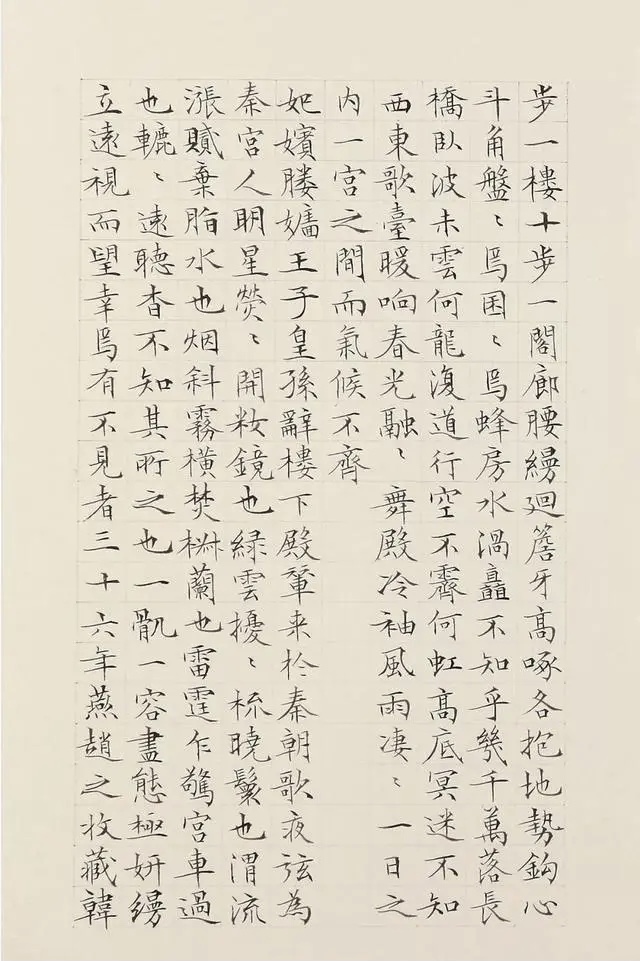 步一樓十步一閣廊腰縵迴簷牙高啄各抱地勢鈎心
斗角盤〻焉囷〻焉蜂房水渦矗不知乎幾千萬落長
橋臥波未雲何龍復道行空不霽何虹高底冥迷不知
西東歌臺暖响春光融〻舞殿冷袖風雨凄〻一日之
內一宮之間而氣候不齊
妃嬪媵嬙王子皇孫辭樓下殿輦来於秦朝歌夜弦為
秦宮人明星熒〻開籹鏡也緑雲擾〻梳曉鬟也渭流
漲膩棄脂水也烟斜霧橫焚椒蘭也雷霆乍驚宮車過
也轆〻遠聽杳不知其所之也一肌一容盡態極妍縵
立遠視而望幸焉有不見者三十六年燕趙之收藏韓